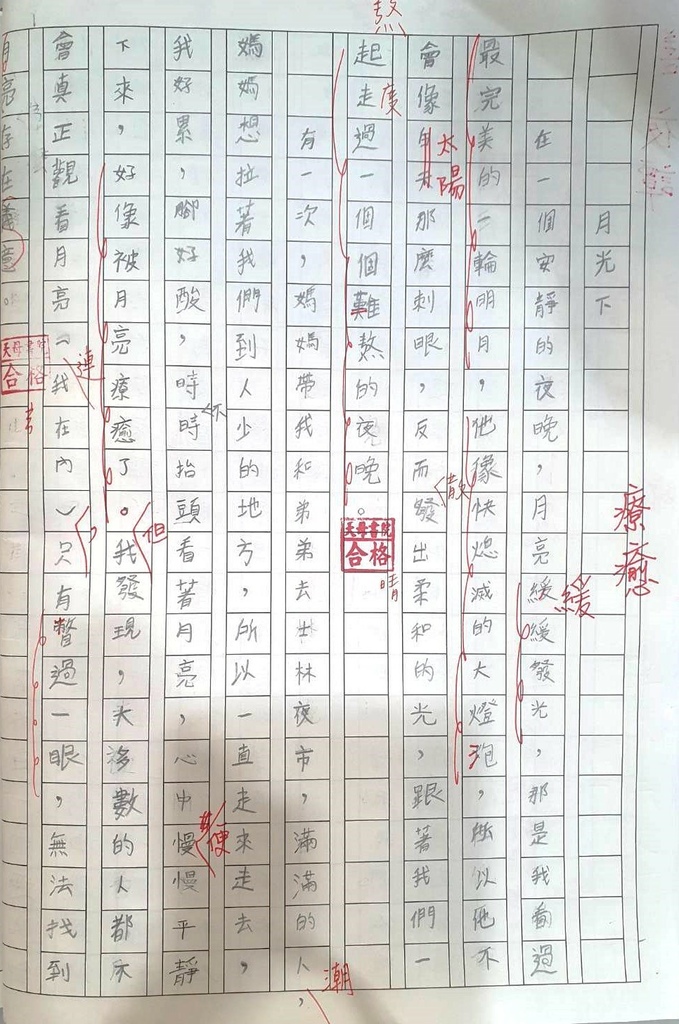 月光下
在一個安靜的夜晚，月亮緩緩發光，那是我看過
最完美的一輪明月，他像快熄滅的大燈泡，所以他不
會像太陽那麼刺眼，反而發散出柔和的光，跟著我們一
起走過一個個難熬的夜晚。
有一次，媽媽帶我和弟弟去士林夜市，滿滿的人潮，
媽媽想拉著我們到人少的地方，所以一直走來走去，
我好累，腳好酸，時不時抬頭看著月亮，心中便慢慢平靜
下來，好像被月亮療癒了。但我發現，大多數的人都不
會真正觀看月亮（連我在內），只有瞥過一眼，無法找到
月亮存在意。
療癒
緩
熬
度
晴
天母書院
合格
天母書院
合格